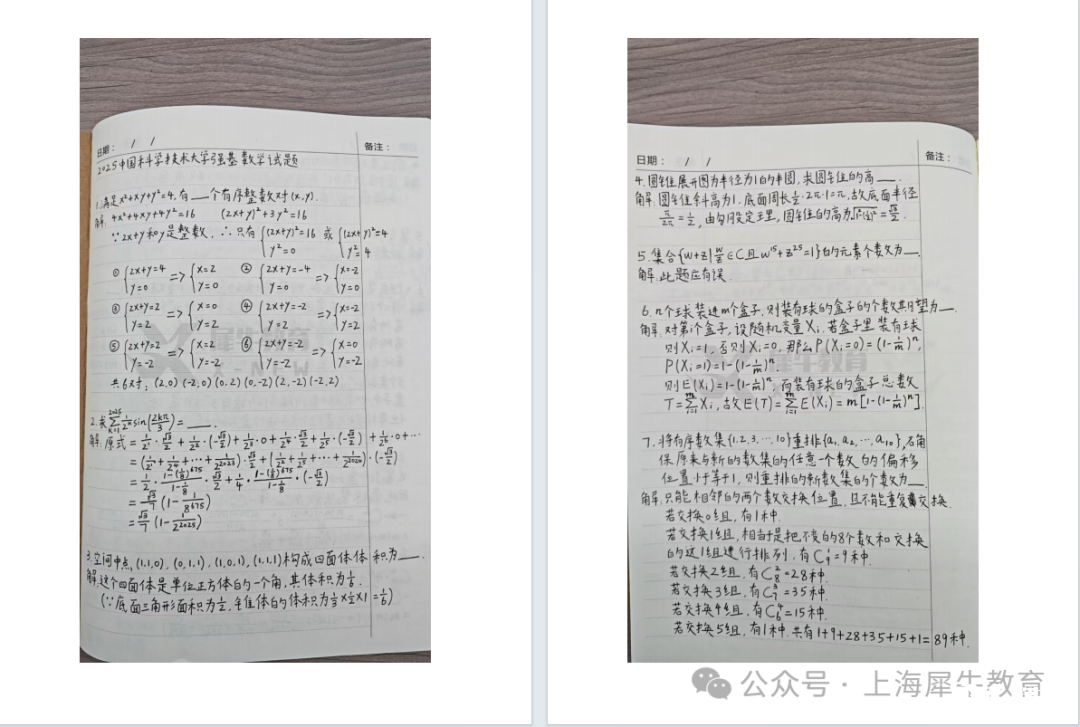 日期: / /
备注:
2025中国科学技术大学强基数学试题
1.满足x²+xy+y²=4,有___个有序整数对(x,y).
解: 4x²+4xy+4y²=16 (2x+y)²+3y²=16
∵2x+y和y是整数,∴只有{(2x+y)²=16 y²=0 或{(2x+y)²=4 y²=4
①{2x+y=4 y=0 =>{x=2 y=0 ②{2x+y=-4 y=0 =>{x=-2 y=0
③{2x+y=2 y=2 =>{x=0 y=2 ④{2x+y=-2 y=2 =>{x=-2 y=2
⑤{2x+y=2 y=-2 =>{x=2 y=-2 ⑥{2x+y=-2 y=-2 =>{x=0 y=-2
共6对: (2,0) (-2,0) (0,2) (0,-2) (2,-2) (-2,2)
2.求∑_{k=1}^{2025} 1/2^k sin(2kπ/3)=___.
解:原式=1/2¹·√3/2+1/2²·(-√3/2)+1/2³·0+1/2⁴·√3/2+1/2⁵·(-√3/2)+1/2⁶·0+···
=(1/2¹+1/2⁴+···+1/2^2023)·√3/2+(1/2²+1/2⁵+···+1/2^2024)·(-√3/2)
=1/2·(1-(1/8)^675)/(1-1/8)·√3/2+1/4·(1-(1/8)^675)/(1-1/8)·(-√3/2)
=√3/7(1-1/8^675)
=√3/7(1-1/2^2025)
3.空间中点,(1,1,0),(0,1,1),(1,0,1),(1,1,1)构成四面体体积为___.
解:这个四面体是单位正方体的一个角,其体积为1/6.
(∵底面三角形面积为1/2,锥体的体积为1/3×1/2×1=1/6)
日期: / /
备注:
4.圆锥展开图为半径为1的半圆,求圆锥的高___.
解:圆锥斜高为1,底面周长1/2·2π·1=π,故底面半径
π/2π=1/2,由勾股定理,圆锥的高为√(1²-(1/2)²)=√3/2.
5.集合{w+z|w/z∈C且w¹⁵+z²⁵=1}的元素个数为___.
解:此题应有误.
6.n个球装进m个盒子,则装有球的盒子的个数其期望为___.
解:对第i个盒子,设随机变量Xi,若盒子里装有球
则Xi=1,否则Xi=0,那么P(Xi=0)=(1-1/m)ⁿ,
P(Xi=1)=1-(1-1/m)ⁿ.
则E(Xi)=1-(1-1/m)ⁿ,而装有球的盒子总数
T=∑_{i=1}^m Xi,故E(T)=∑_{i=1}^m E(Xi)=m[1-(1-1/m)ⁿ].
7.将有序数集{1,2,3,···,10}重排{a₁,a₂,···,a₁₀},石角
保原来与新的数集的任意一个数的偏移
位置小于等于1,则重排的新数集的个数为___.
解:只能相邻的两个数交换位置,且不能重复交换.
若交换0组,有1种.
若交换1组,相当于是把不变的8个数和交换
的这1组进行排列,有C₉¹=9种.
若交换2组,有C₈²=28种.
若交换3组,有C₇³=35种.
若交换4组,有C₆⁴=15种.
若交换5组,有1种.共有1+9+28+35+15+1=89种.
犀牛教育
公众号·上海犀牛教育